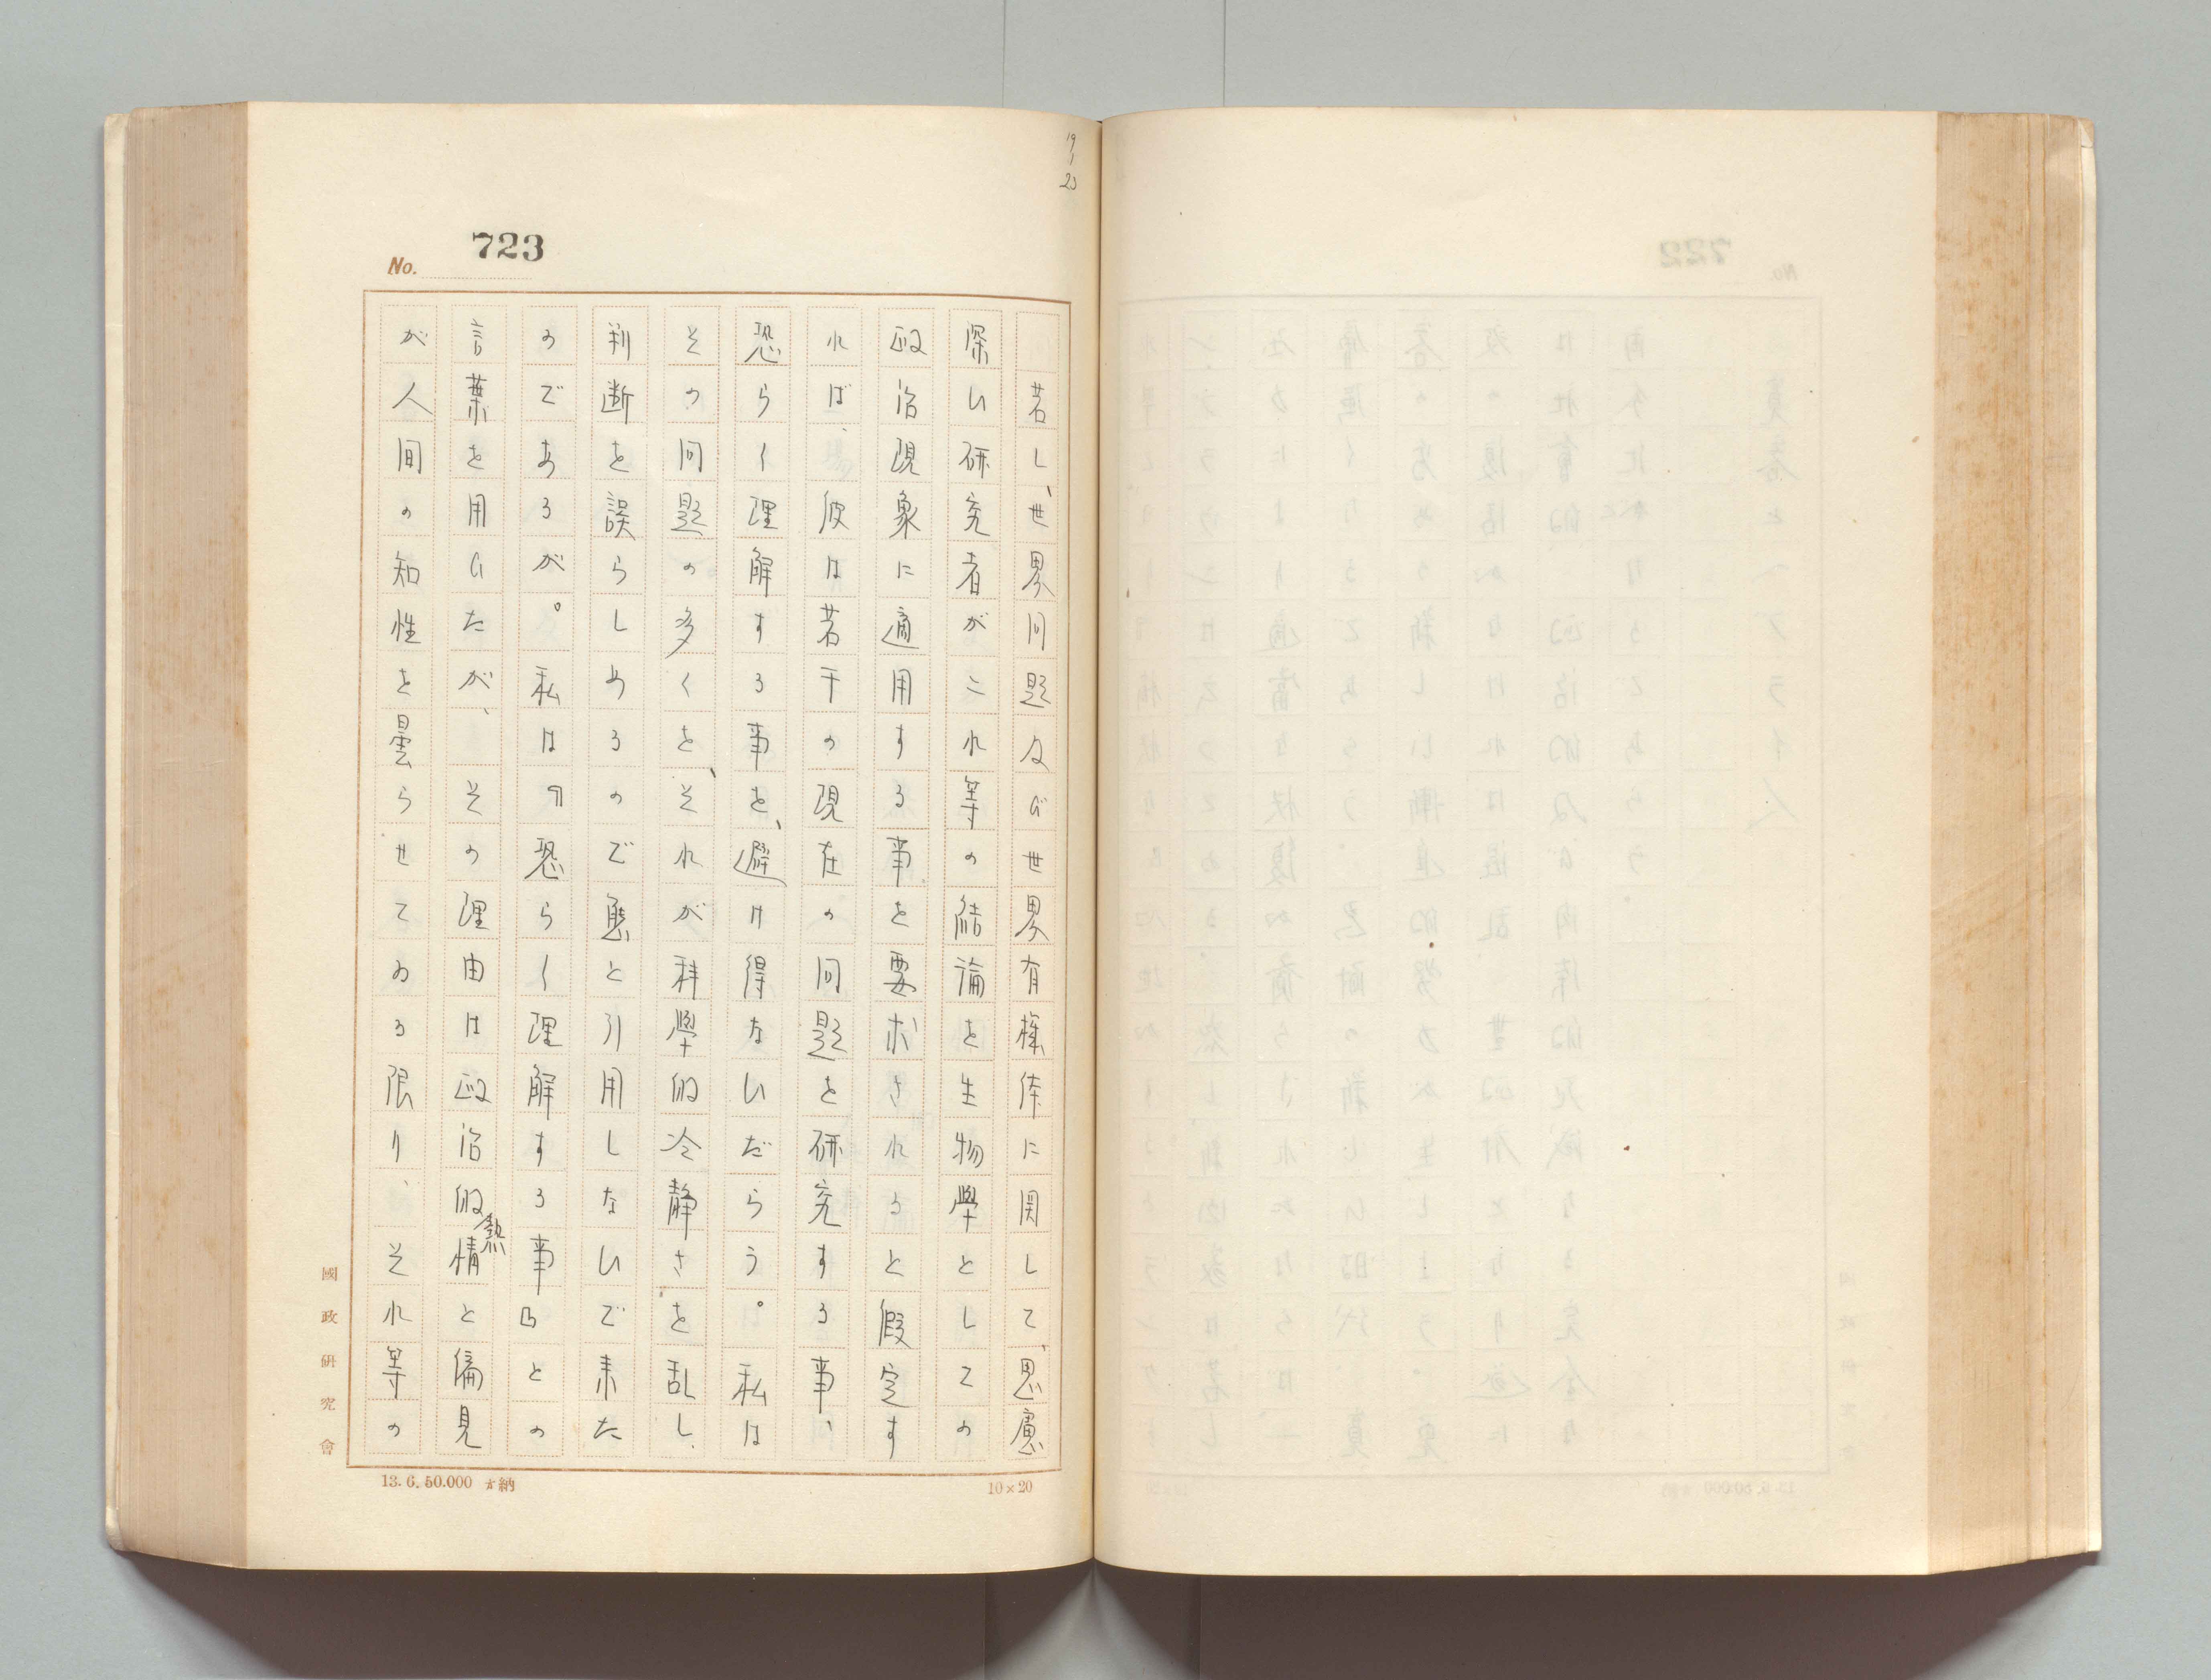 19/1/23
No. 723
若し、世界问题及び世界有様体に関して、思慮
深い研究者がこれ等の結論を生物學としての
政治現象に適用する事を要求されると假定す
れば、彼は若干の現在の问题を研究する事、
恐らく理解する事を、避け得ないだらう。私は
その问题の多くを、それが科學的冷静さを乱し、
判断を誤らしめるので態と引用しないで来た
のであるが。私は『恐らく理解する事』との
言葉を用ひたが、その理由は政治的熱情と偏見
が人间の知性を曇らせてゐる限り、それ等の
國政研究會
13.6.50.000 納
10×20